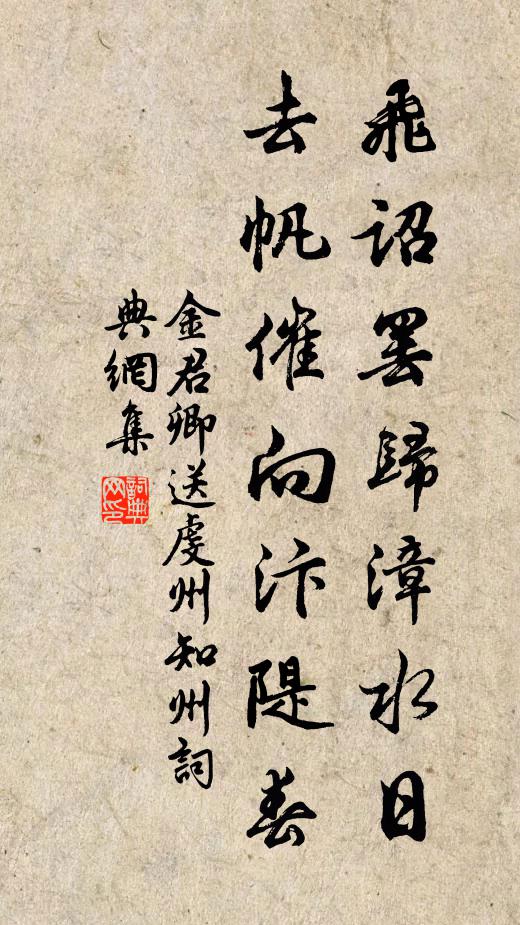 飛詔罢歸漳水日
去帆催向汴隄春
金君卿送虔州知州詞
典網集
詞典網印